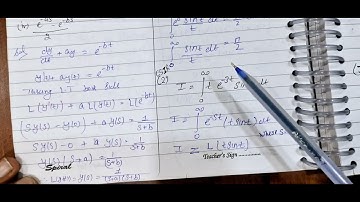 e^-as - e^-bs
2
Sol dy/dt + ay = e^-bt
y'(t) + ay(t) = e^-bt
Taking L.T. both sides
L(y'(t)) + a L(y(t)) = L(e^-bt)
(sy(s) - y(0)) + a y(s) = 1/(s+b)
sy(s) - 0 + a y(s) = 1/(s+b)
y(s)(s+a) = 1/(s+b)
Spiral
sint/t = π/2
∫₀^∞ sint/t dt = π/2
(2) I = ∫₀^∞ t e^-3t sint dt
I = ∫ e^-st (t sint) dt
where s=
I = L(t sint)
Teacher's Sign